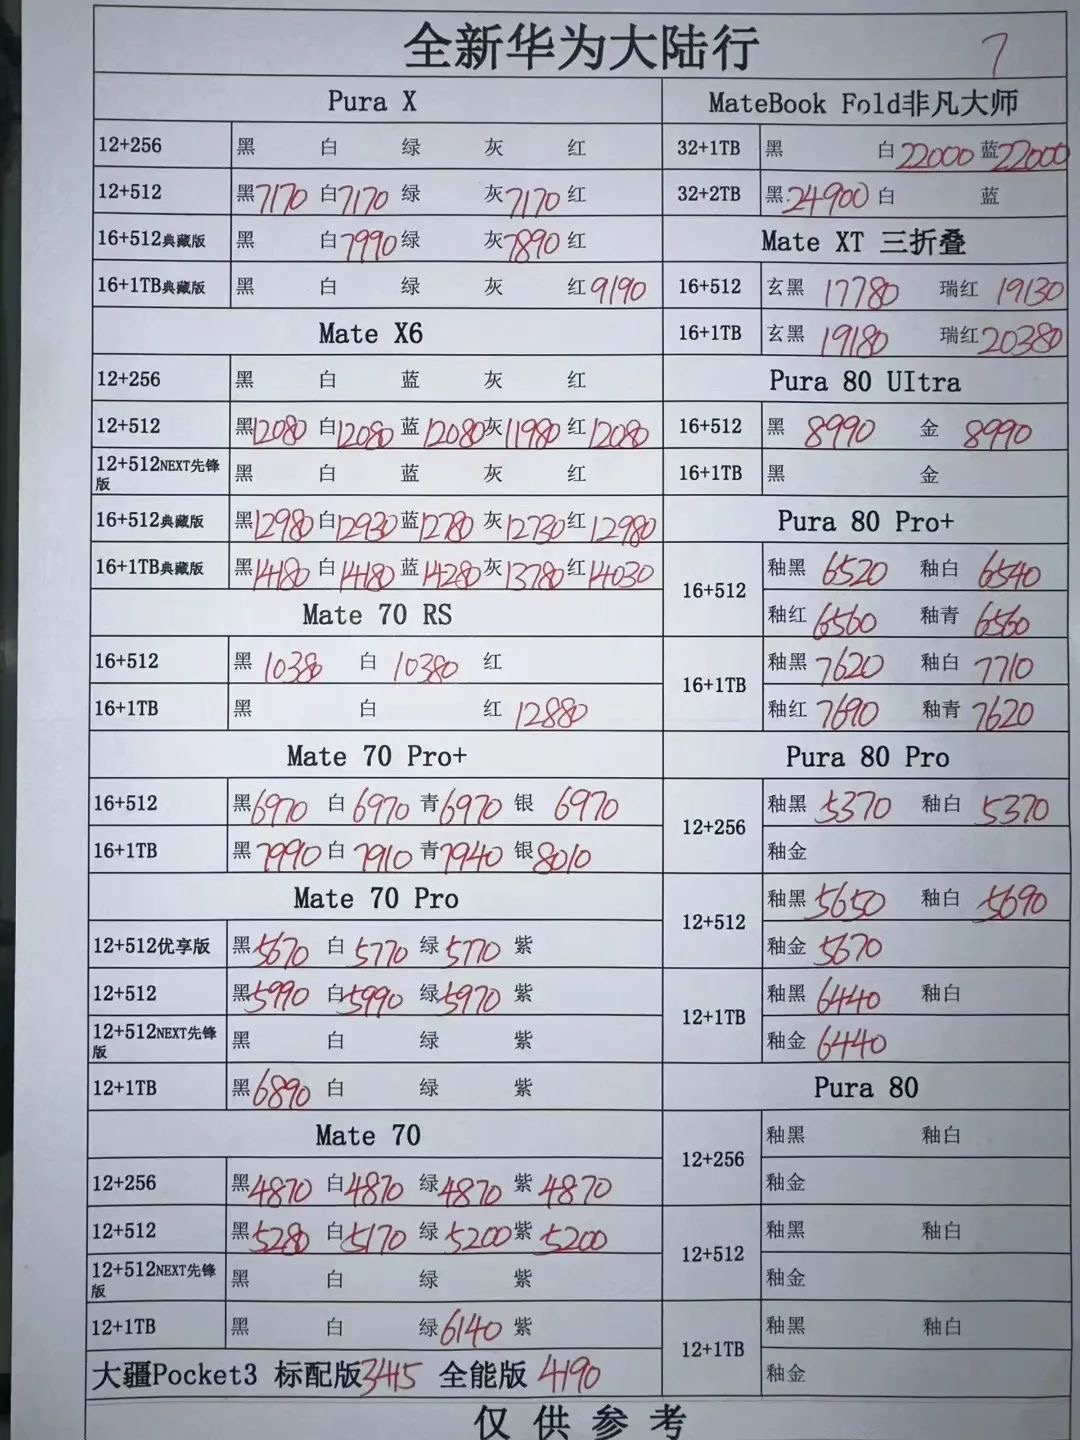 全新华为大陆行 7
Pura X
12+256 黑 白 绿 灰 红
12+512 黑7170 白7170 绿 灰7170 红
16+512典藏版 黑 白7990 绿 灰7890 红
16+1TB典藏版 黑 白 绿 灰 红9190
Mate X6
12+256 黑 白 蓝 灰 红
12+512 黑12080 白12080 蓝12080 灰11980 红12080
12+512NEXT先锋版 黑 白 蓝 灰 红
16+512典藏版 黑12980 白12930 蓝12780 灰12730 红12980
16+1TB典藏版 黑14180 白14180 蓝14280 灰13780 红14030
Mate 70 RS
16+512 黑 10380 白 10380 红
16+1TB 黑 白 红 12880
Mate 70 Pro+
16+512 黑6970 白 6970 青6970 银 6970
16+1TB 黑7990 白 7910 青7940 银8010
Mate 70 Pro
12+512优享版 黑5670 白 5770 绿 5770 紫
12+512 黑5990 白5990 绿5970 紫
12+512NEXT先锋版 黑 白 绿 紫
12+1TB 黑6890 白 绿 紫
Mate 70
12+256 黑4870 白4870 绿4870 紫 4870
12+512 黑5280 白5170 绿 5200 紫 5200
12+512NEXT先锋版 黑 白 绿 紫
12+1TB 黑 白 绿6140 紫
大疆Pocket3 标配版3415 全能版 4190
MateBook Fold非凡大师
32+1TB 黑 白22000 蓝22000
32+2TB 黑24900 白 蓝
Mate XT 三折叠
16+512 玄黑 17780 瑞红 19130
16+1TB 玄黑 19180 瑞红20380
Pura 80 UItra
16+512 黑 8990 金 8990
16+1TB 黑 金
Pura 80 Pro+
16+512 釉黑 6520 釉白 6540
釉红 6560 釉青 6560
16+1TB 釉黑 7620 釉白 7710
釉红 7690 釉青 7620
Pura 80 Pro
12+256 釉黑 5370 釉白 5370
釉金
12+512 釉黑 5650 釉白 5690
釉金 5670
12+1TB 釉黑 6440 釉白
釉金 6440
Pura 80
12+256 釉黑 釉白
釉金
12+512 釉黑 釉白
釉金
12+1TB 釉黑 釉白
釉金
仅供参考